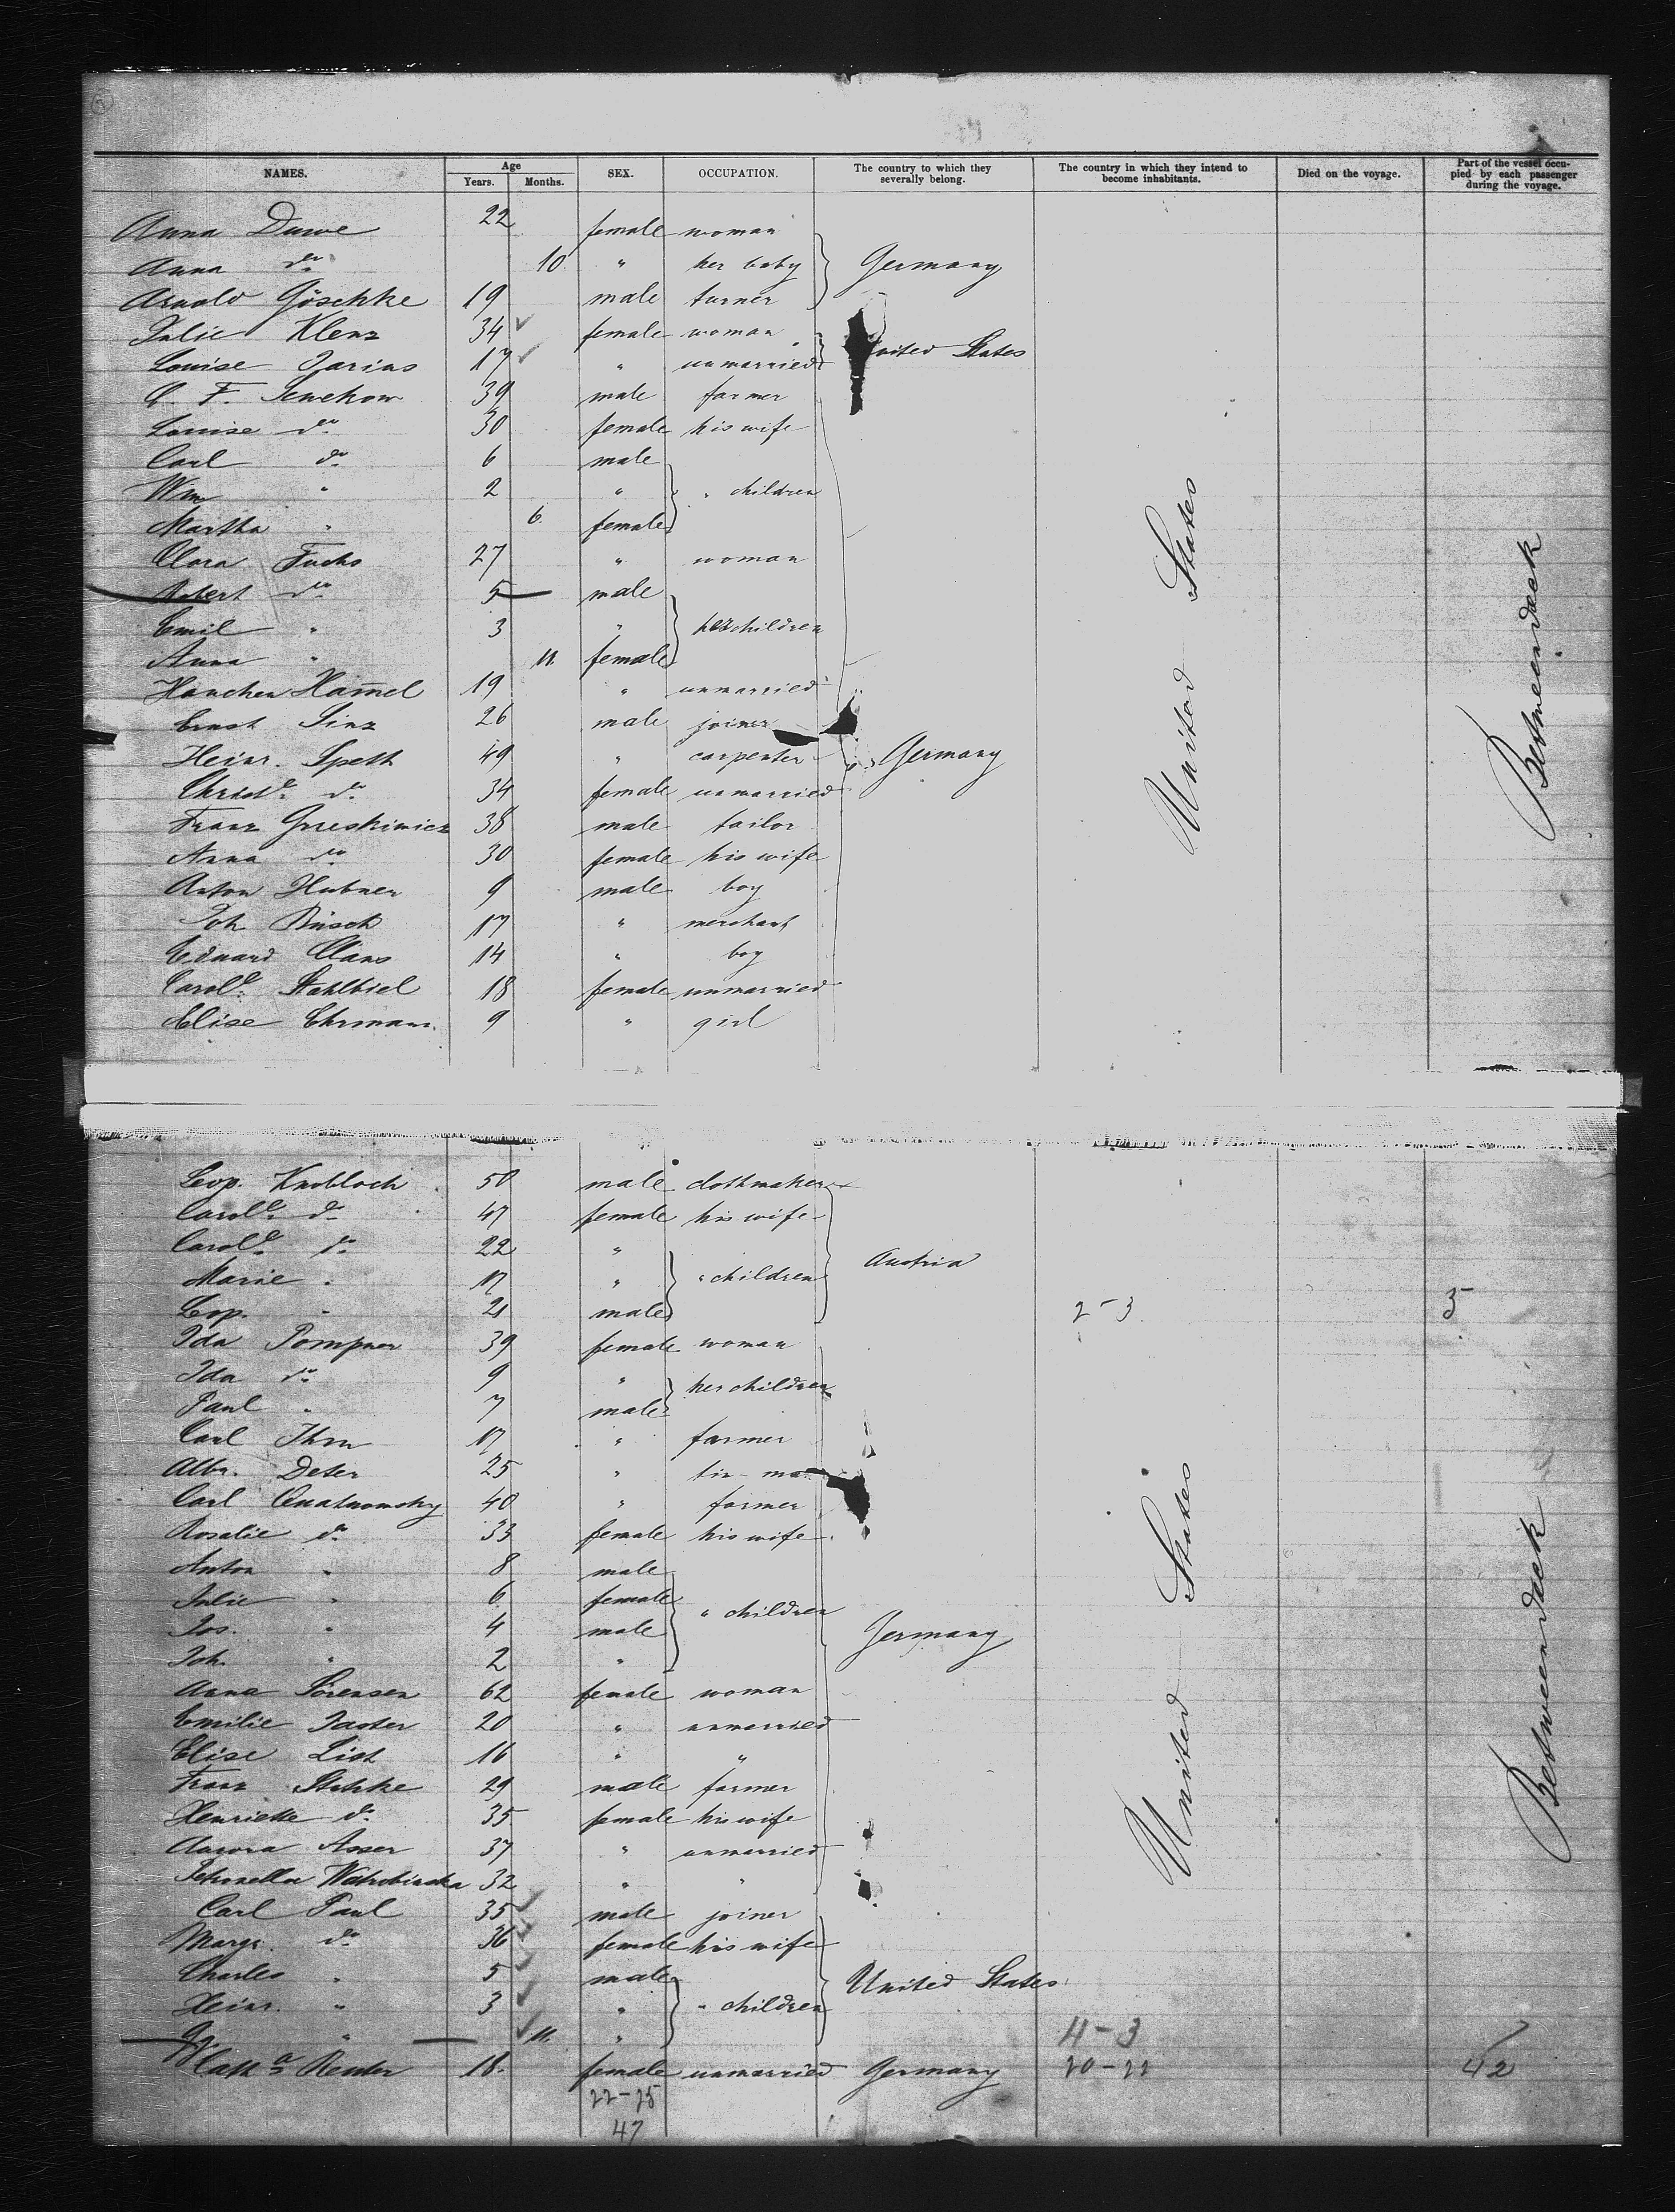 NAMES. Age SEX. OCCUPATION. The country to which they severally belong. The country in which they intend to become inhabitants. Died on the voyage. Part of the vessel occupied by each passenger during the voyage.
Years. Months.
Anna Duwe 22 female woman
Anna do 10 " her baby Germany
Arnold Göschke 19 male turner
Julie Klenz 34 female woman
Louise Darius 17 " unmarried United States
F. 39 male farmer
Louise do 30 female his wife
Carl do 6 male
Wm " 2 " " children
Martha " 6 female
Clara Fuchs 27 " woman
Robert do 5 male
Emil " 3 " her children
Anna " 11. female
Hanchen Ham̄el 19 " unmarried
Ernst Sinz 26 male joiner
Heinr. Speth 49 " carpenter Germany
Christe do 34 female unmarried
Franz 38 male tailor
Anna do 30 female his wife
Anton Hubner 9 male boy
Joh. Büsch 17 " merchant
Eduard Claus 14 " boy
Carole Stahlbiel 18 female unmarried
Elise Ehrmann. 9 " girl
United States
Betweendeck
Leop. Knobloch 50 male clothmaker
Carole do 47 female his wife
Carole do 22 "
Marie " 17 " " children Austria
Leop. " 21 male 2-3 5
Ida Pompner 39 female woman
Ida do 9 " her children
Paul " 7 male
Carl Ihrn 17 " farmer
Albr. Deter 25 "
Carl Quatnowsky 40 " farmer
Rosalie do 33 female his wife
Anton " 8 male
Julie " 6 female " children
Jos. " 4 male Germany
Joh. " 2 "
Anna Sörensen 62 female woman
Emilie Jaster 20 " unmarried
Elise List 16 " "
Franz Stehke 29 male farmer
Henriette do 35 female his wife
Aurora Asser 37 " unmarried
Petronella 32 " "
Carl Paul 35 male joiner
Margr. do 36 female his wife
Charles " 5 male United States
Heinr. " 3 " " children
" 11. " 4-3
Catha Reuter 18. female unmarried Germany 20-22 42
22-25
47
United States
Betweendeck